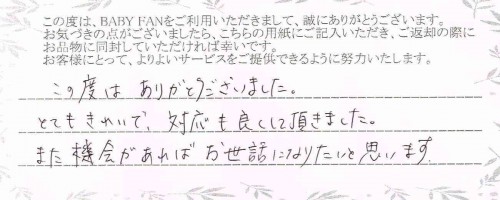 この度は、BABY FANをご利用いただきまして、誠にありがとうございます。
お気づきの点がございましたら、こちらの用紙にご記入いただき、ご返却の際に
お品物に同封していただければ幸いです。
お客様にとって、よりよいサービスをご提供できるように努力いたします。
この度は ありがとうございました。
とてもきれいで、対応も良くして頂きました。
また機会があれば お世話になりたいと思います。